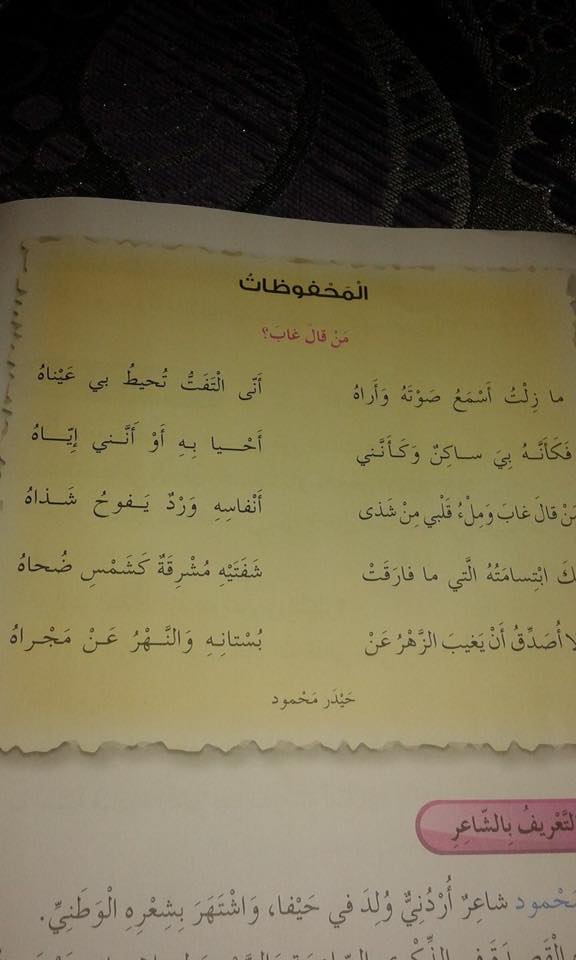 الْمَحْفوظاتُ
مَنْ قالَ غابَ؟
ما زِلْتُ أَسْمَعُ صَوْتَهُ وَأَراهُ أَنّى الْتَفَتُّ تُحيطُ بي عَيْناهُ
فَكَأَنَّهُ بِيَ ساكِنٌ وَكَأَنَّني أَحْيا بِهِ أَوْ أَنَّني إِيّاهُ
مَنْ قالَ غابَ وَمِلْءُ قَلْبي مِنْ شَذى أَنْفاسِهِ وَرْدٌ يَفوحُ شَذاهُ
ابْتِسامَتُهُ الَّتي ما فارَقَتْ شَفَتَيْهِ مُشْرِقَةٌ كَشَمْسِ ضُحاهُ
لا أُصَدِّقُ أَنْ يَغيبَ الزَّهْرُ عَنْ بُسْتانِهِ وَالنَّهْرُ عَنْ مَجْراهُ
حَيْدَر مَحْمود
التَّعْريفُ بِالشّاعِرِ
مَحْمود شاعِرٌ أُرْدُنِيٌّ وُلِدَ في حَيْفا، وَاشْتَهَرَ بِشِعْرِهِ الْوَطَنِيِّ.